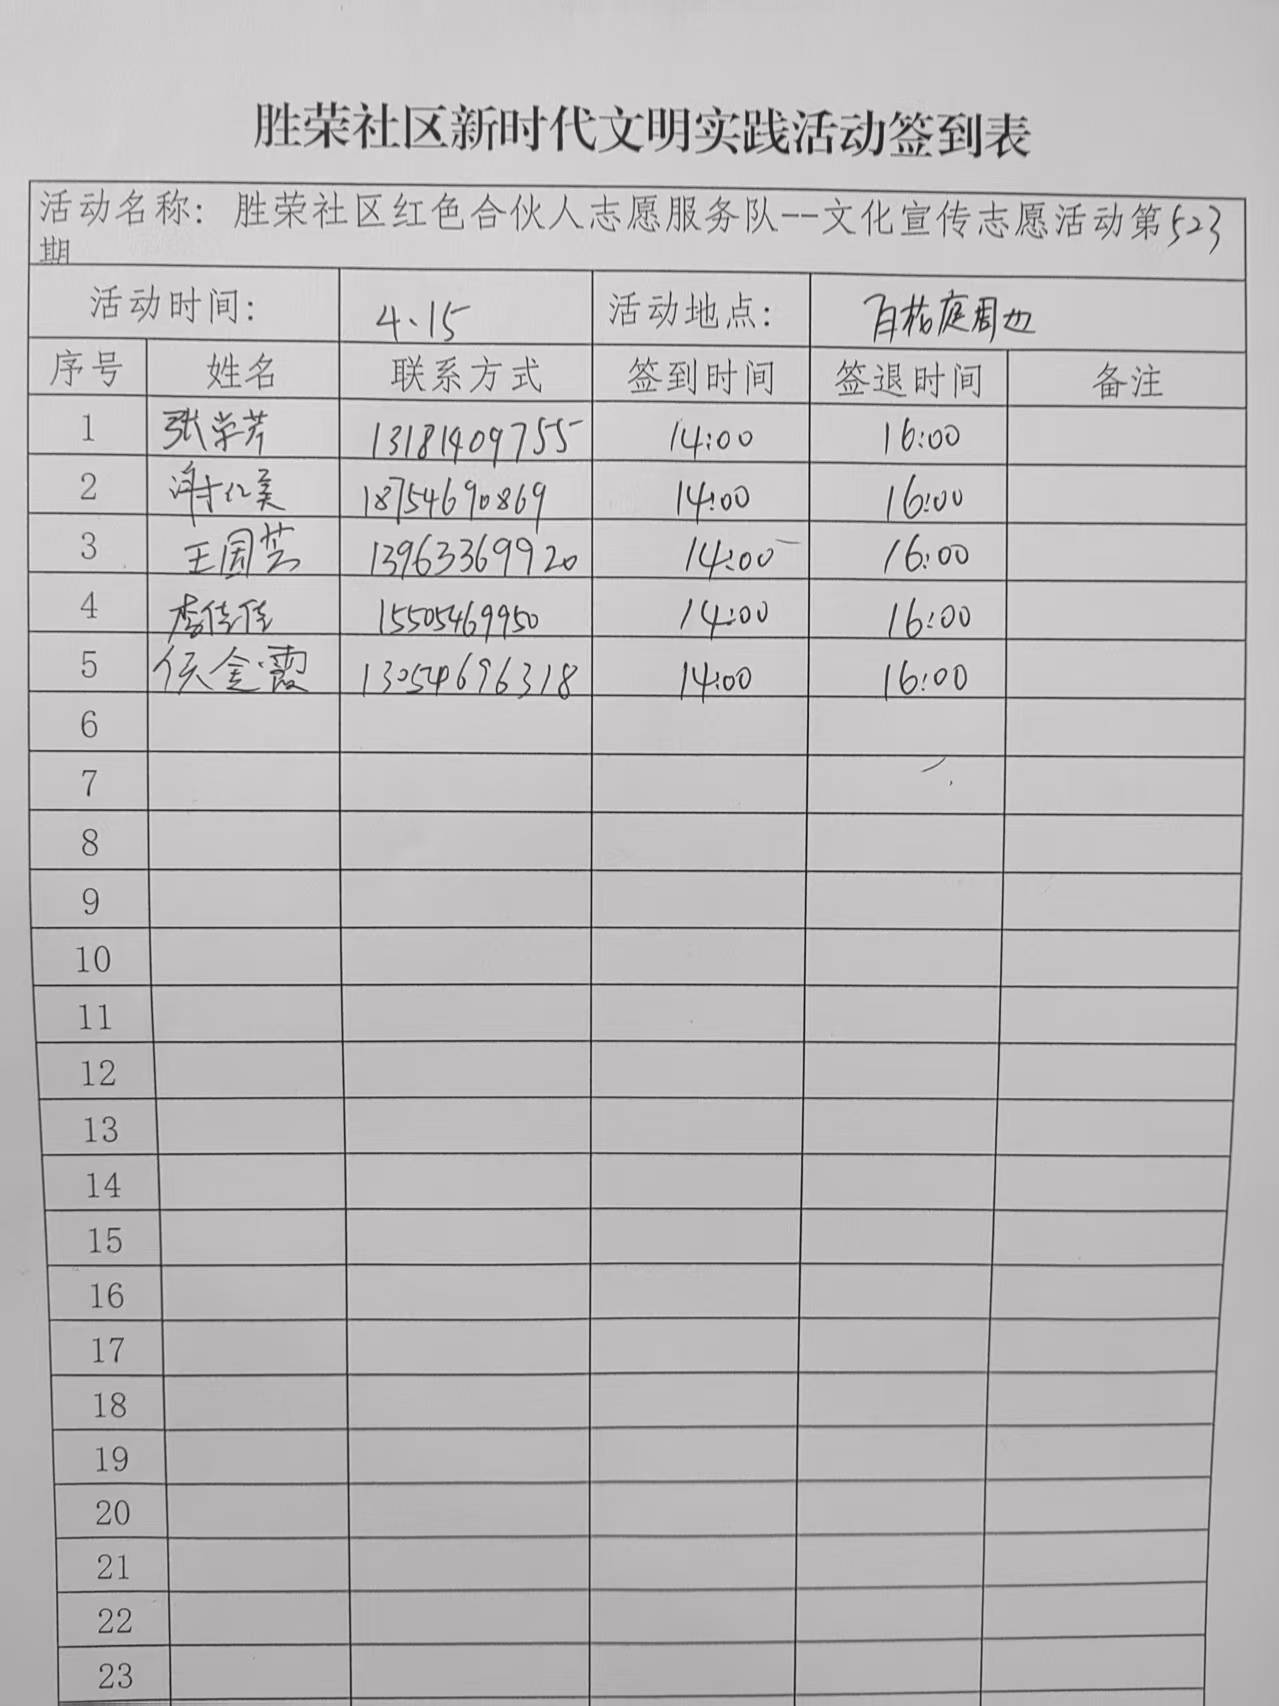 胜荣社区新时代文明实践活动签到表
活动名称：胜荣社区红色合伙人志愿服务队--文化宣传志愿活动第523
期
活动时间： 4.15 活动地点： 周边
序号 姓名 联系方式 签到时间 签退时间 备注
1 张学芳 13181409755 14:00 16:00
2 谢仁美 18754690869 14:00 16:00
3 王国芸 13963369920 14:00 16:00
4 李佳佳 15505469950 14:00 16:00
5 侯金霞 13054696318 14:00 16:00
6
7
8
9
10
11
12
13
14
15
16
17
18
19
20
21
22
23